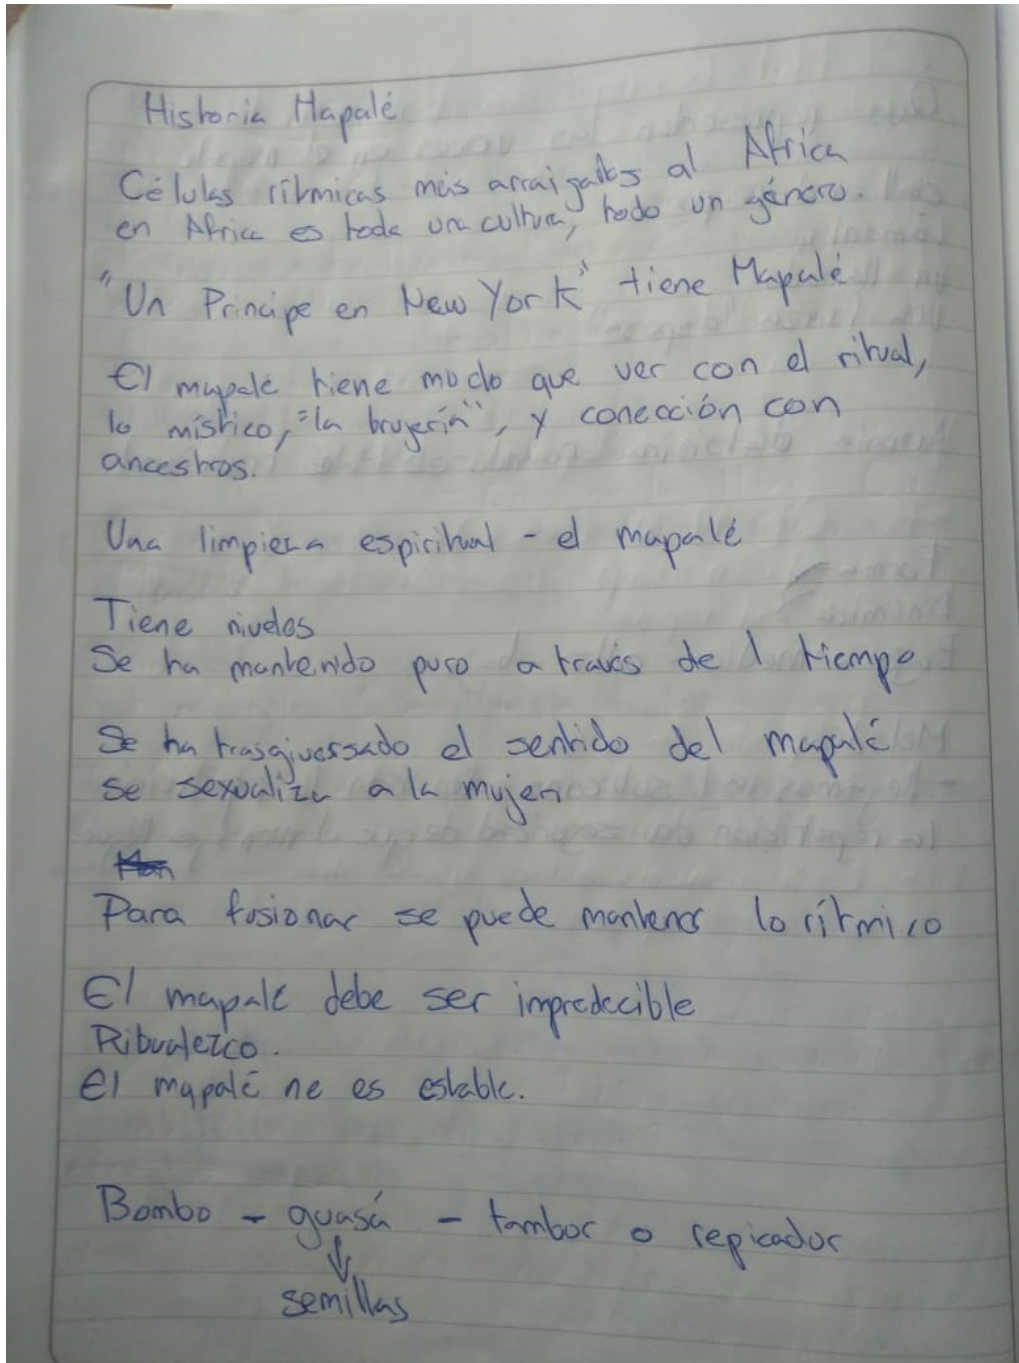 Historia Mapalé
Células rítmicas más arraigadas al Africa
en Africa es toda una cultura, todo un género.
"Un Principe en New York" tiene Mapalé
El mapalé tiene mucho que ver con el ritual,
lo místico, "la brujería", y conección con
ancestros.
Una limpieza espiritual - el mapalé
Tiene niveles
Se ha mantenido puro a través del tiempo
Se ha trasgiversado el sentido del mapalé
se sexualiza a la mujer
Para fusionar se puede mantener lo rítmico
El mapalé debe ser impredecible
Ritualezco.
El mapalé no es estable.
Bombo - guasá - tambor o repicador
semillas